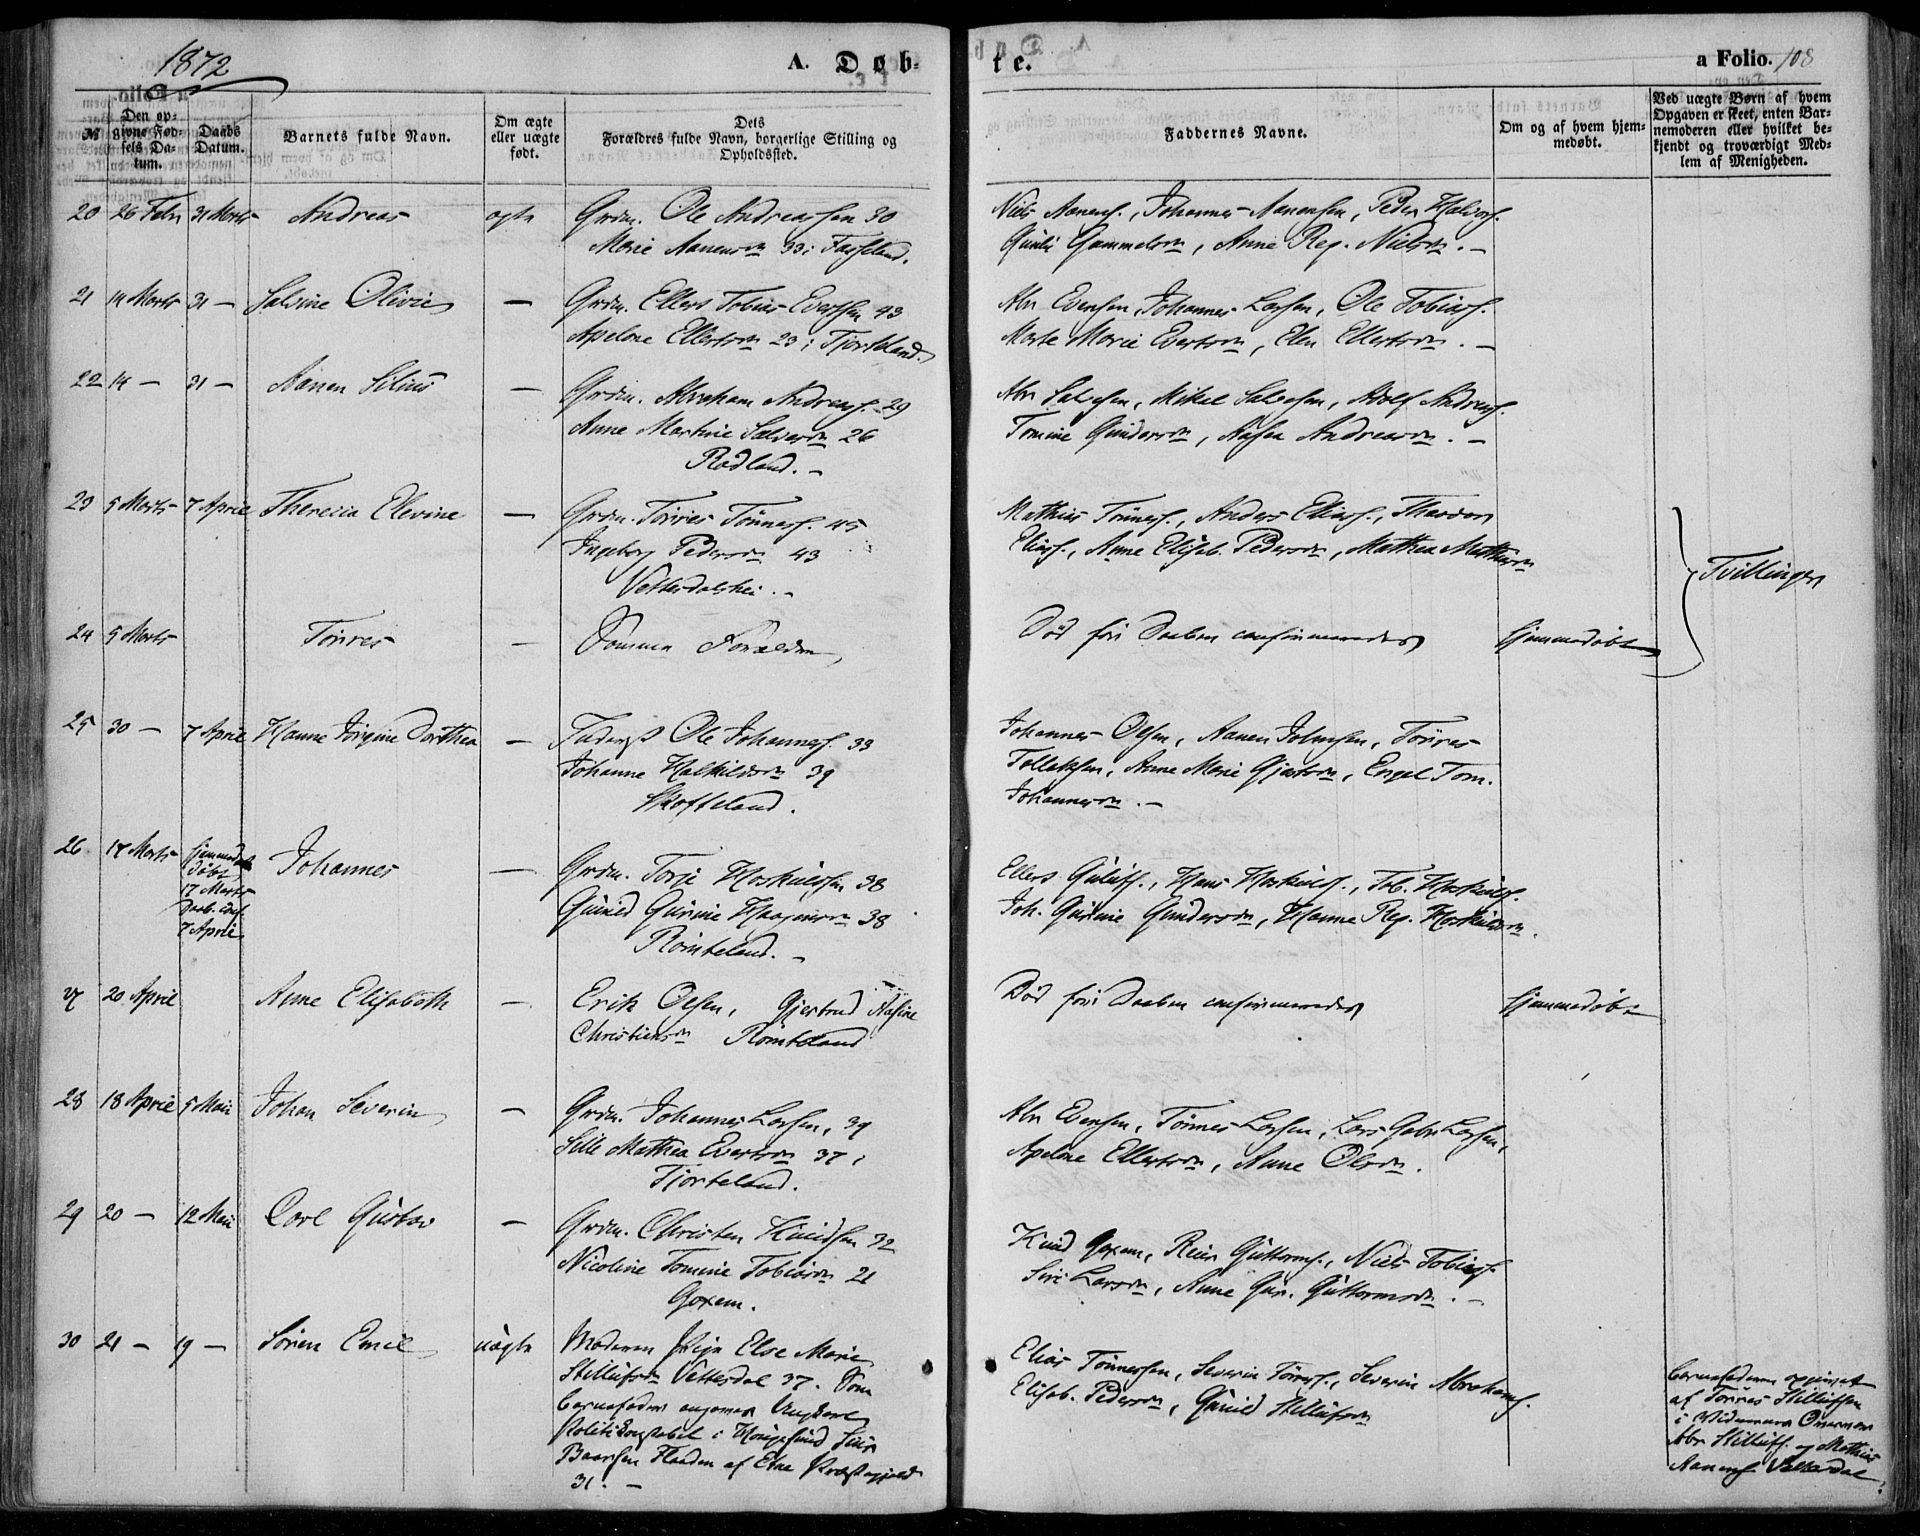 1872
A. Døb-
te.
a Folio. 108
№
Den op-
givne Fød-
sels Da-
tum.
Daabs
Datum.
Barnets fulde Navn.
Om ægte
eller uægte
født.
Dets
Forældres fulde Navn, borgerlige Stilling og
Opholdssted.
Faddernes Navne.
Om og af hvem hjem-
medøbt.
Ved uægte Børn af hvem
Opgaven er skeet, enten Bar-
nemoderen eller hvilket be-
kjendt og troværdigt Med-
lem af Menigheden.
20 26 Febr 31 Marts Andreas ægte Grdm. Ole Andreassen 30
Marie Aanensdn 33: Fasseland.
Niels Aanens., Johannes Aanensen, Peder Halvors.
Gunild Gammelsdn, Anne Reg. Nielsdn. -
21 14 Marts 31 - Salvine Olivie - Grdm. Ellert Tobias Evertsen 43
Apelone Ellertsdn 23: Fjorteland.
Abr Evensen, Johannes Larsen, Ole Tobias.
Marte Marie Evertsdn, Elen Ellertsdn. -
22 14 - 31 - Aanen Silius - Grdm. Abraham Andreas. 29
Anne Martine Salvesdn 26
Rødland. -
Abr Salvesen, Mikal Salvesen, Adolf Andreas.
Tomine Gundersdn, Aasea Andreasdn. -
23 5 Marts 7 April Therecia Elevine - Grdm. Tørres Tønnes. 45
Ingeborg Pedersdn 43
Vetterdalshei. -
Mathias Tønnes., Anders Elias., Theodor
Elias., Anne Elisab. Pedersdn, Mathea Mathiasdn
Tvillinger
24 5 Marts Tørres - Samme Forældre
Død før Daaben confirmeredes
hjemmedøbt
25 30 - 7 April Hanne Jørgine Dorthea - Ole Johannes. 33
Johanne Haskildsdn 39
Skoffeland.
Johannes Olsen, Aanen Johnsen, Tørres
Tollaksen, Anne Marie Gjertsdn, Engel Tom.
Johannesdn. -
26 17 Marts hjemme
døbt
17 Marts
Daab. conf.
7 April
Johannes - Grdm. Torje Hoskuldsen 38
Gunild Gurine Haagensdn 38
Rømteland. -
Ellert Guluvs., Hans Hoskulds., Tob. Hoskulds.
Joh. Gurine Gundersdn, Hanne Reg. Hoskuldsdn.
27 20 April Anne Elisabeth - Erik Olsen, Gjertrud Aasine
Christiansdn Rømteland
Død før Daaben confirmeredes
hjemmedøbt
28 18 April 5 Mai Johan Severin - Grdm. Johannes Larsen, 39
Sille Mathea Evertsdn 37:
Fjorteland.
Abr Evensen, Tønnes Larsen, Lars Gabr Larsen,
Apelone Ellertsdn, Anne Olsdn.
29 20 - 12 Mai Carl Gustav - Grdm. Christen Knudsen 32
Nicoline Tomine Tobiasdn 21
Goxem.
Knud Goxem, Reier Guttorms., Niels Tobias.
Siri Larsdn, Anne Gur. Guttormsdn. -
30 21 - 19 - Søren Emil uægte Moderen Pige Else Marie
Stillufsdn Vetterdal 37. Som
Barnefader angives Ungkarl
Politikonstabel i Haugesund
Baardsen Fladen af Etne Præstegjeld
31. -
Elias Tønnessen, Severin Tørres., Severin Abrahams.
Elisab. Pedersdn, Gunild Stillufsdn
Barnefaderen opgivet
af Tørres Stillufsen
i Vidneners Overvær
Abr Stillufs. og Mathias
Aanens Vetterdal.